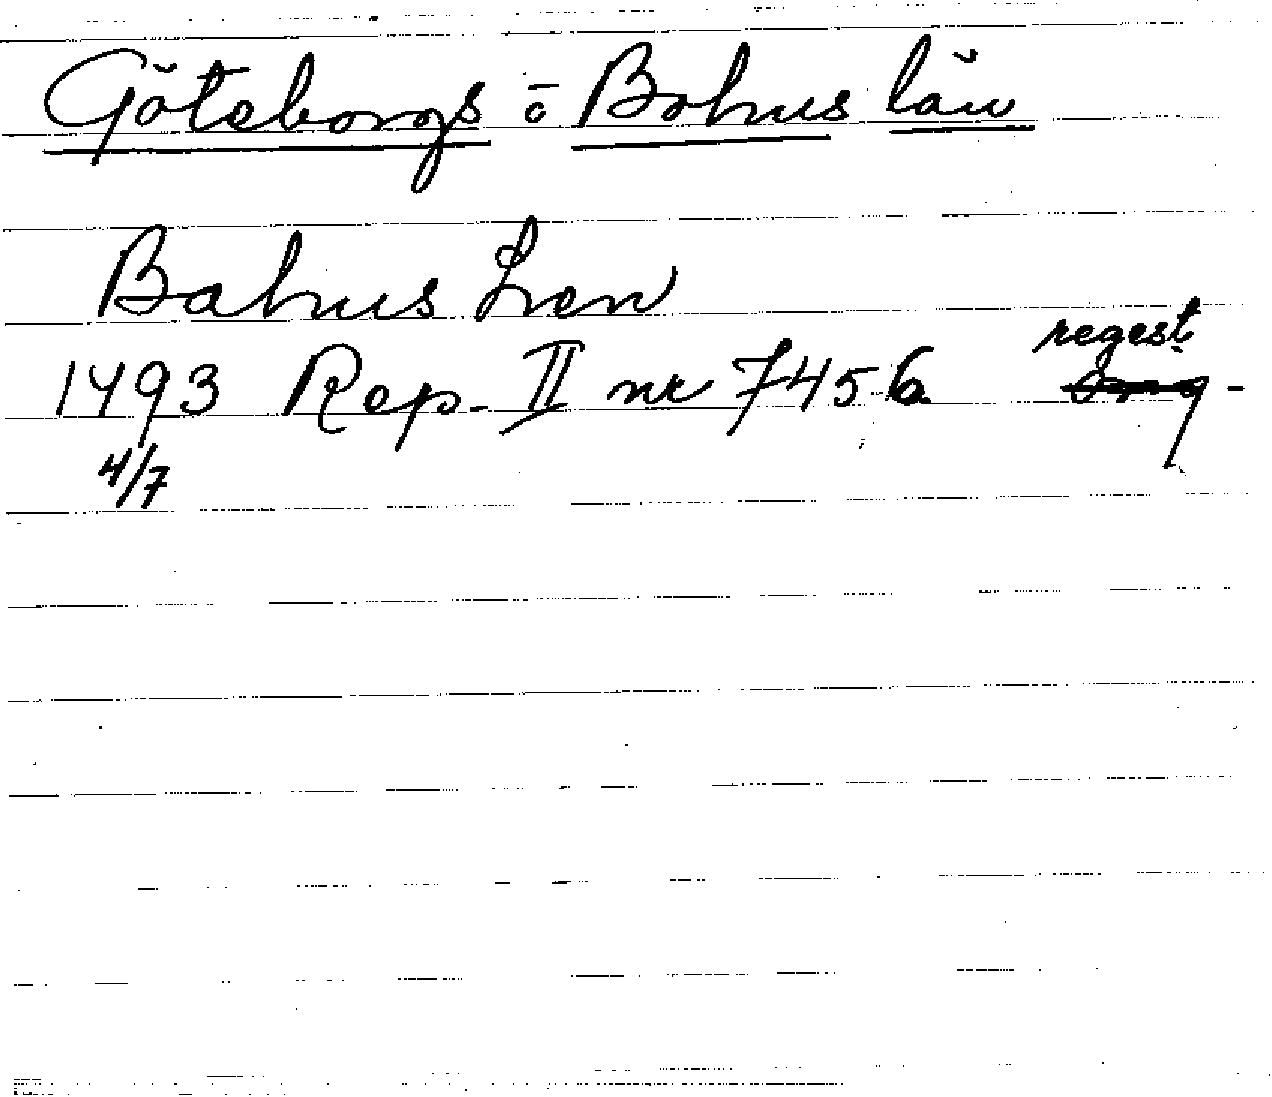 Göteborgs o Bohus län
Bahus Len
regest.
1493 Rep. II nr 7456
4/7